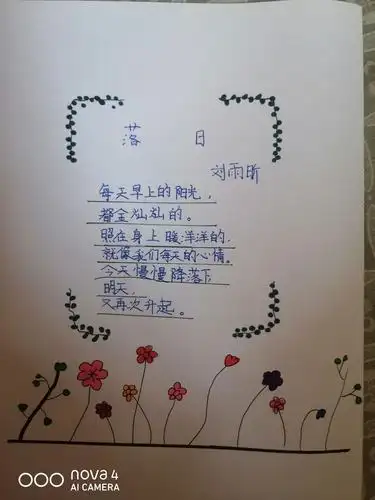 落 日
刘雨昕
每天早上的阳光，
都金灿灿的。
照在身上暖洋洋的，
就像我们每天的心情。
今天慢慢降落下
明天，
又再次升起。
nova 4
AI CAMERA